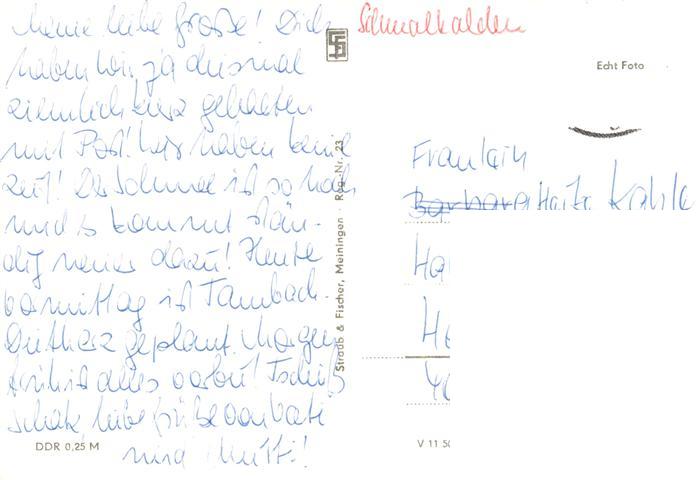 Meine liebe Große! Dich
haben wir ja diesmal
ziemlich kurz gehalten
mit Post! Wir haben keine
Zeit! Der Schnee ist so hoch
und es kommt stän-
dig neuer dazu! Heute
vormittag ist Tambach-
Dietharz geplant. Morgen
früh ist alles vorbei! Tschüß
Schatz liebe Grüße von Vati
und Mutti!
DDR 0,25 M
Straub & Fischer, Meiningen · Reg.-Nr. 23
Schmalkalden
Echt Foto
Fräulein
Barbara Heike Kahle
Ha
V 11 50